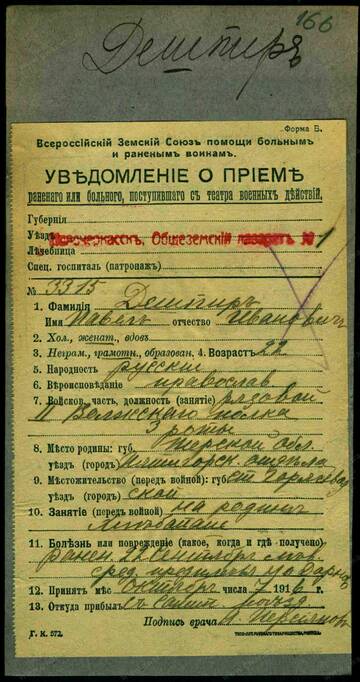 166
Дештиръ
Форма Б.
Всероссійскій Земскій Союзъ помощи больнымъ
и раненымъ воинамъ.
УВѢДОМЛЕНІЕ О ПРІЕМѢ
раненаго или больного, поступившаго съ театра военныхъ дѣйствій.
Губернія
Уѣздъ
Новочеркасскъ, Общеземскій лазаретъ № 1
Лѣчебница
Спец. госпиталь (патронажъ)
№ 3315
1. Фамилія Дештиръ
Имя Павелъ отчество Ивановичъ
2. Хол., женат., вдовъ
3. Неграм., грамотн., образован. 4. Возрастъ 22
5. Народность русскій
6. Вѣроисповѣданіе православ
7. Войсков. часть, должность (занятіе) рядовой
II Волжскаго полка
3 роты
8. Мѣсто родины: губ. Терской обл.
уѣздъ (городъ) отдѣла
9. Мѣстожительство (передъ войной): губ. ст.
уѣздъ (городъ) ской
10. Занятіе (передъ войной) на родинѣ
11. Болѣзнь или поврежденіе (какое, когда и гдѣ получено)
ранен. 22 сентября
12. Принятъ мѣс. октября числа 7 1916 г.
13. Откуда прибылъ съ поѣзд
Подпись врача
Г. К. 572.